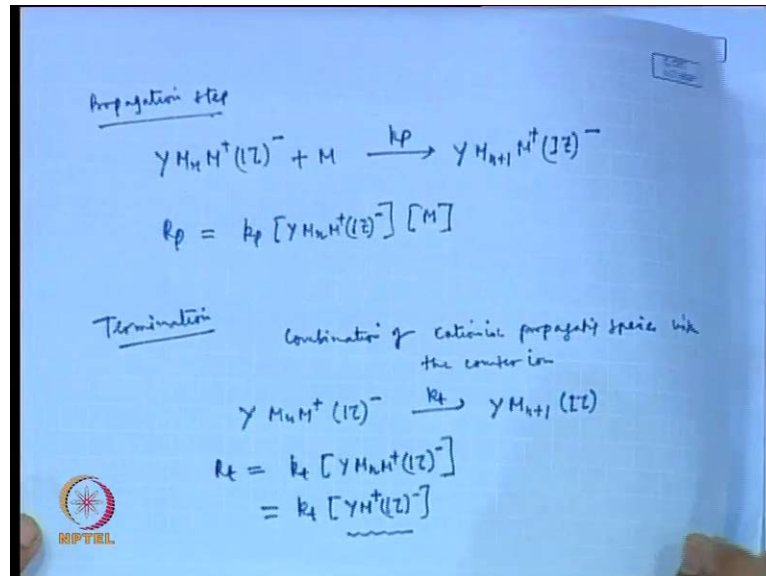 Propagation step
YMₙM⁺(IZ)⁻ + M —kp→ YMₙ₊₁M⁺(IZ)⁻
Rp = kp [YMₙM⁺(IZ)⁻] [M]
Termination
Combination of cationic propagatig species with
the counter ion
YMₙM⁺(IZ)⁻ —kt→ YMₙ₊₁(IZ)
Rt = kt [YMₙM⁺(IZ)⁻]
= kt [YM⁺(IZ)⁻]
NPTEL